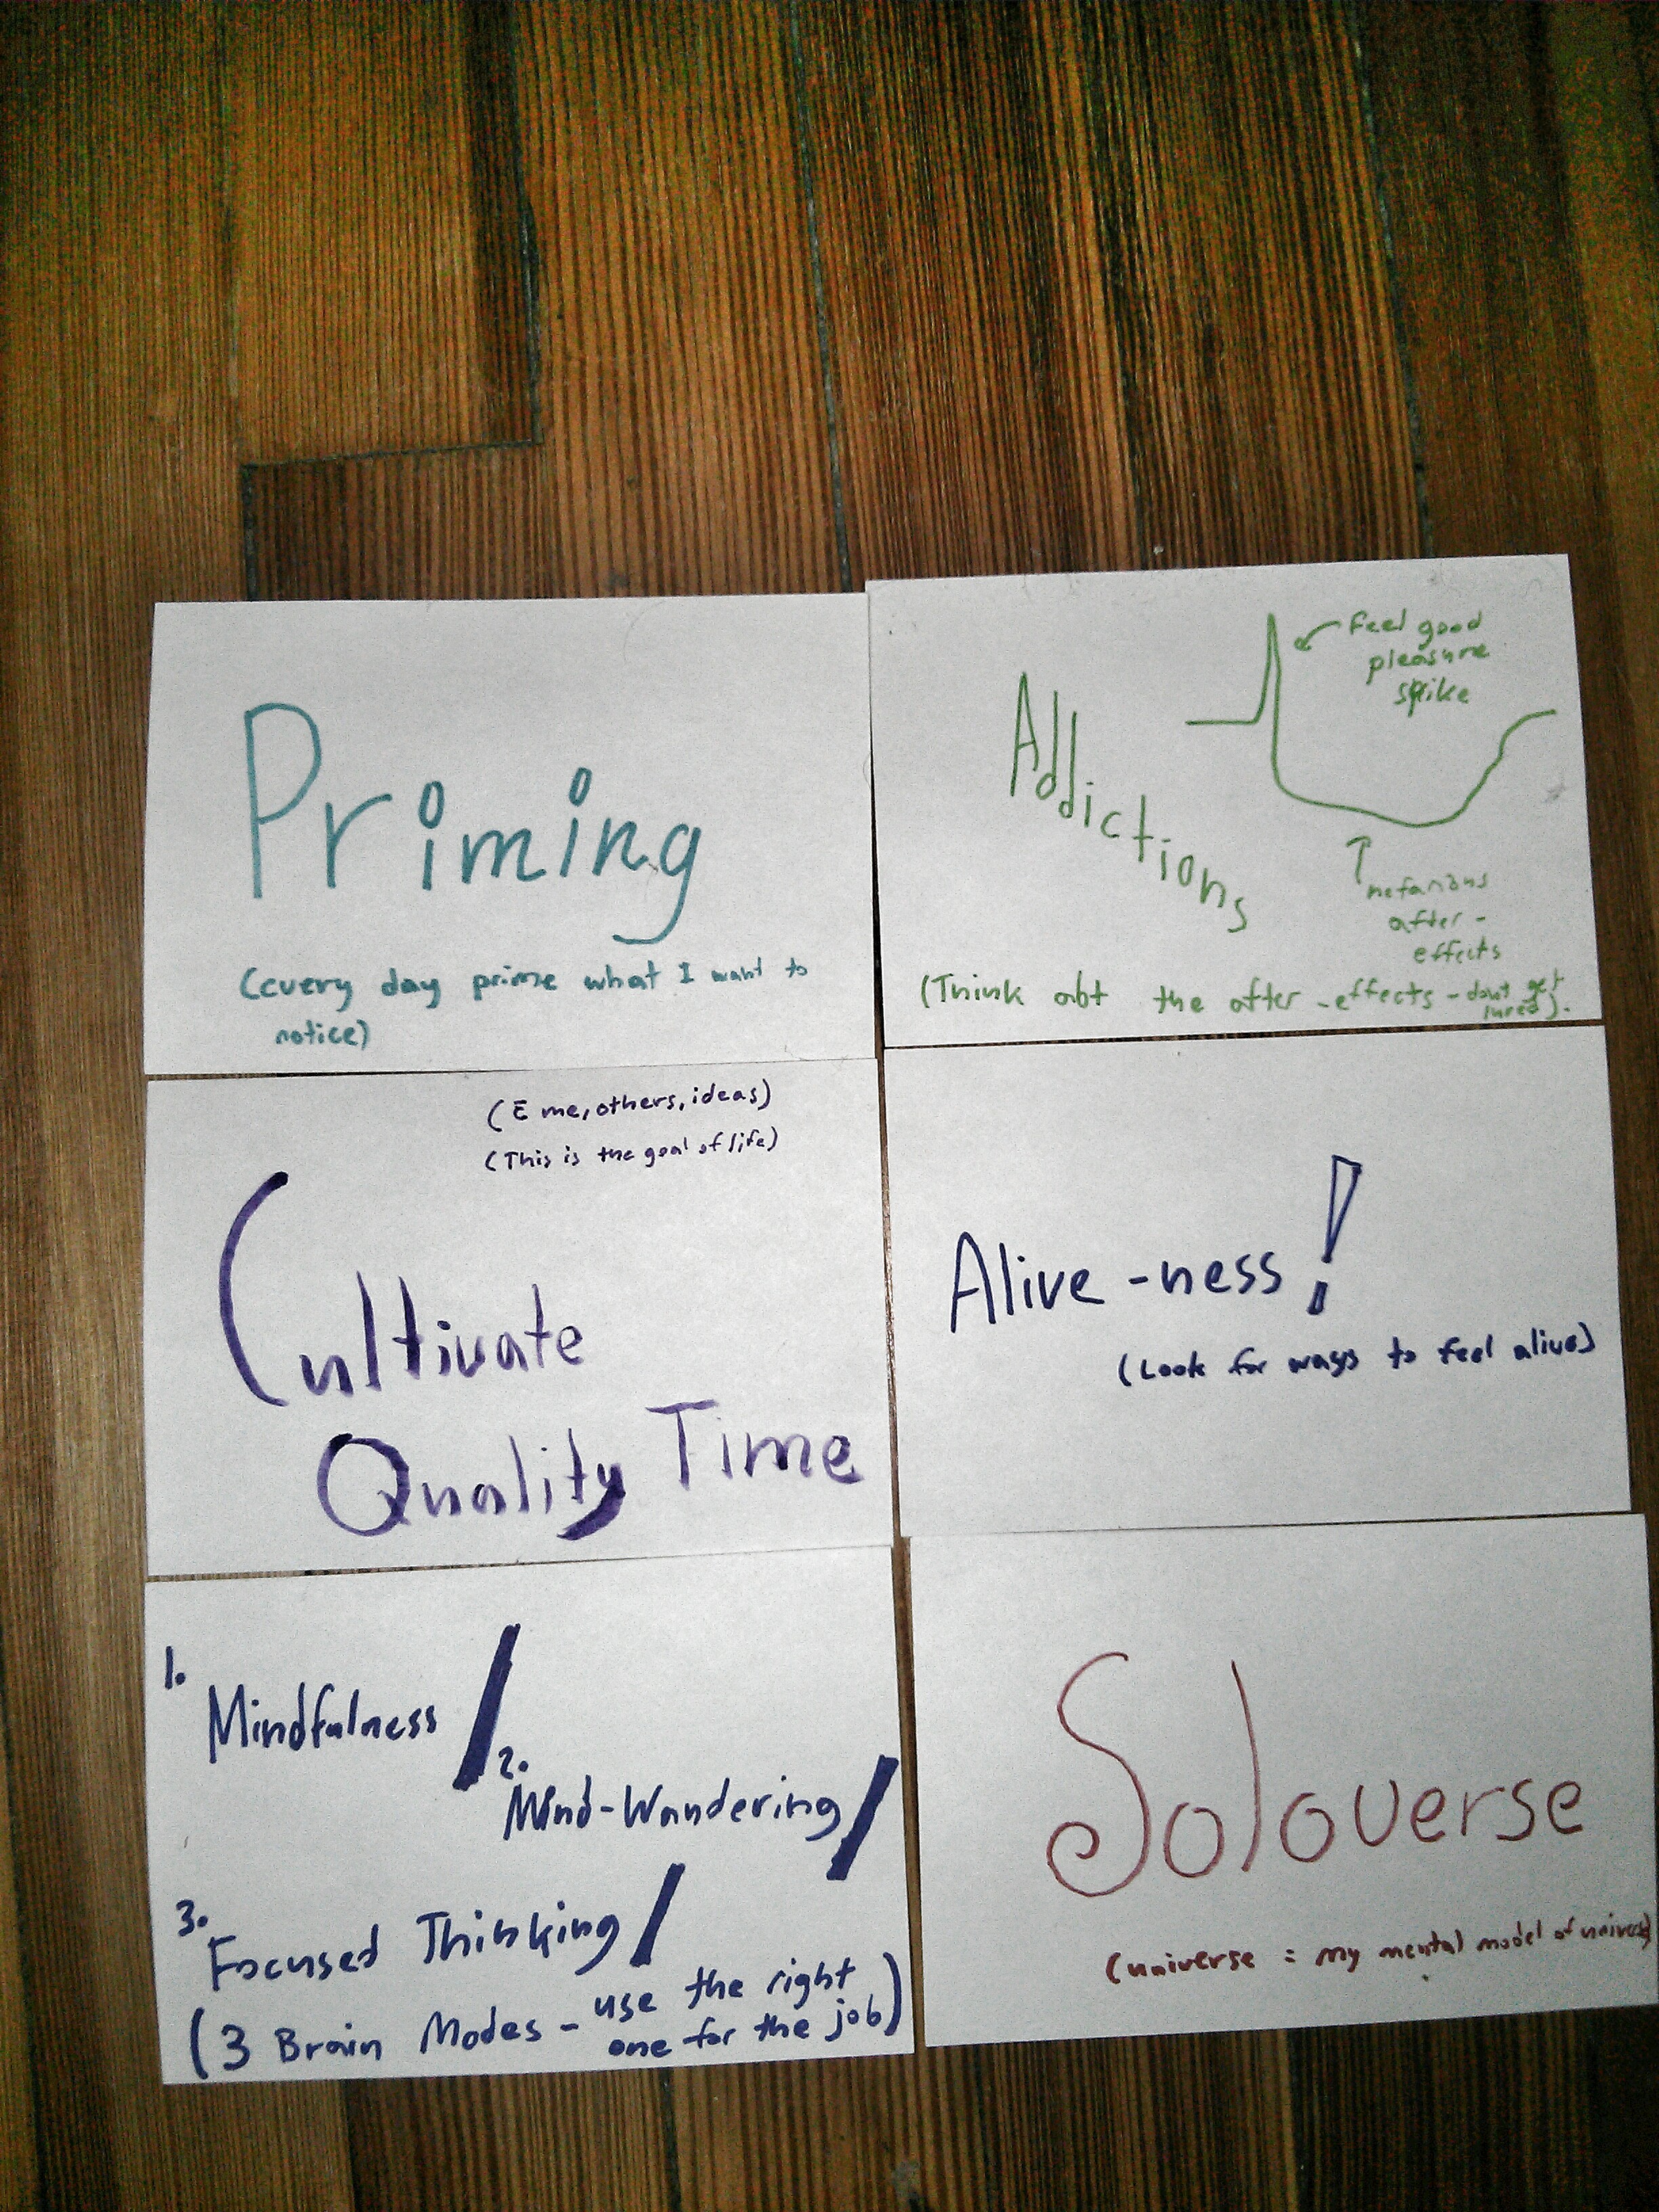 Priming
(every day prime what I want to
notice)
Addictions
feel good
pleasure
spike
nefarious
after-
effects
(Think abt the after-effects - don't get
lured).
(E me, others, ideas)
(This is the goal of life)
Cultivate
Quality Time
Alive-ness!
(Look for ways to feel alive)
1. Mindfulness /
2. Mind-Wandering /
3. Focused Thinking /
(3 Brain Modes - use the right
one for the job)
Soloverse
(universe = my mental model of universe)